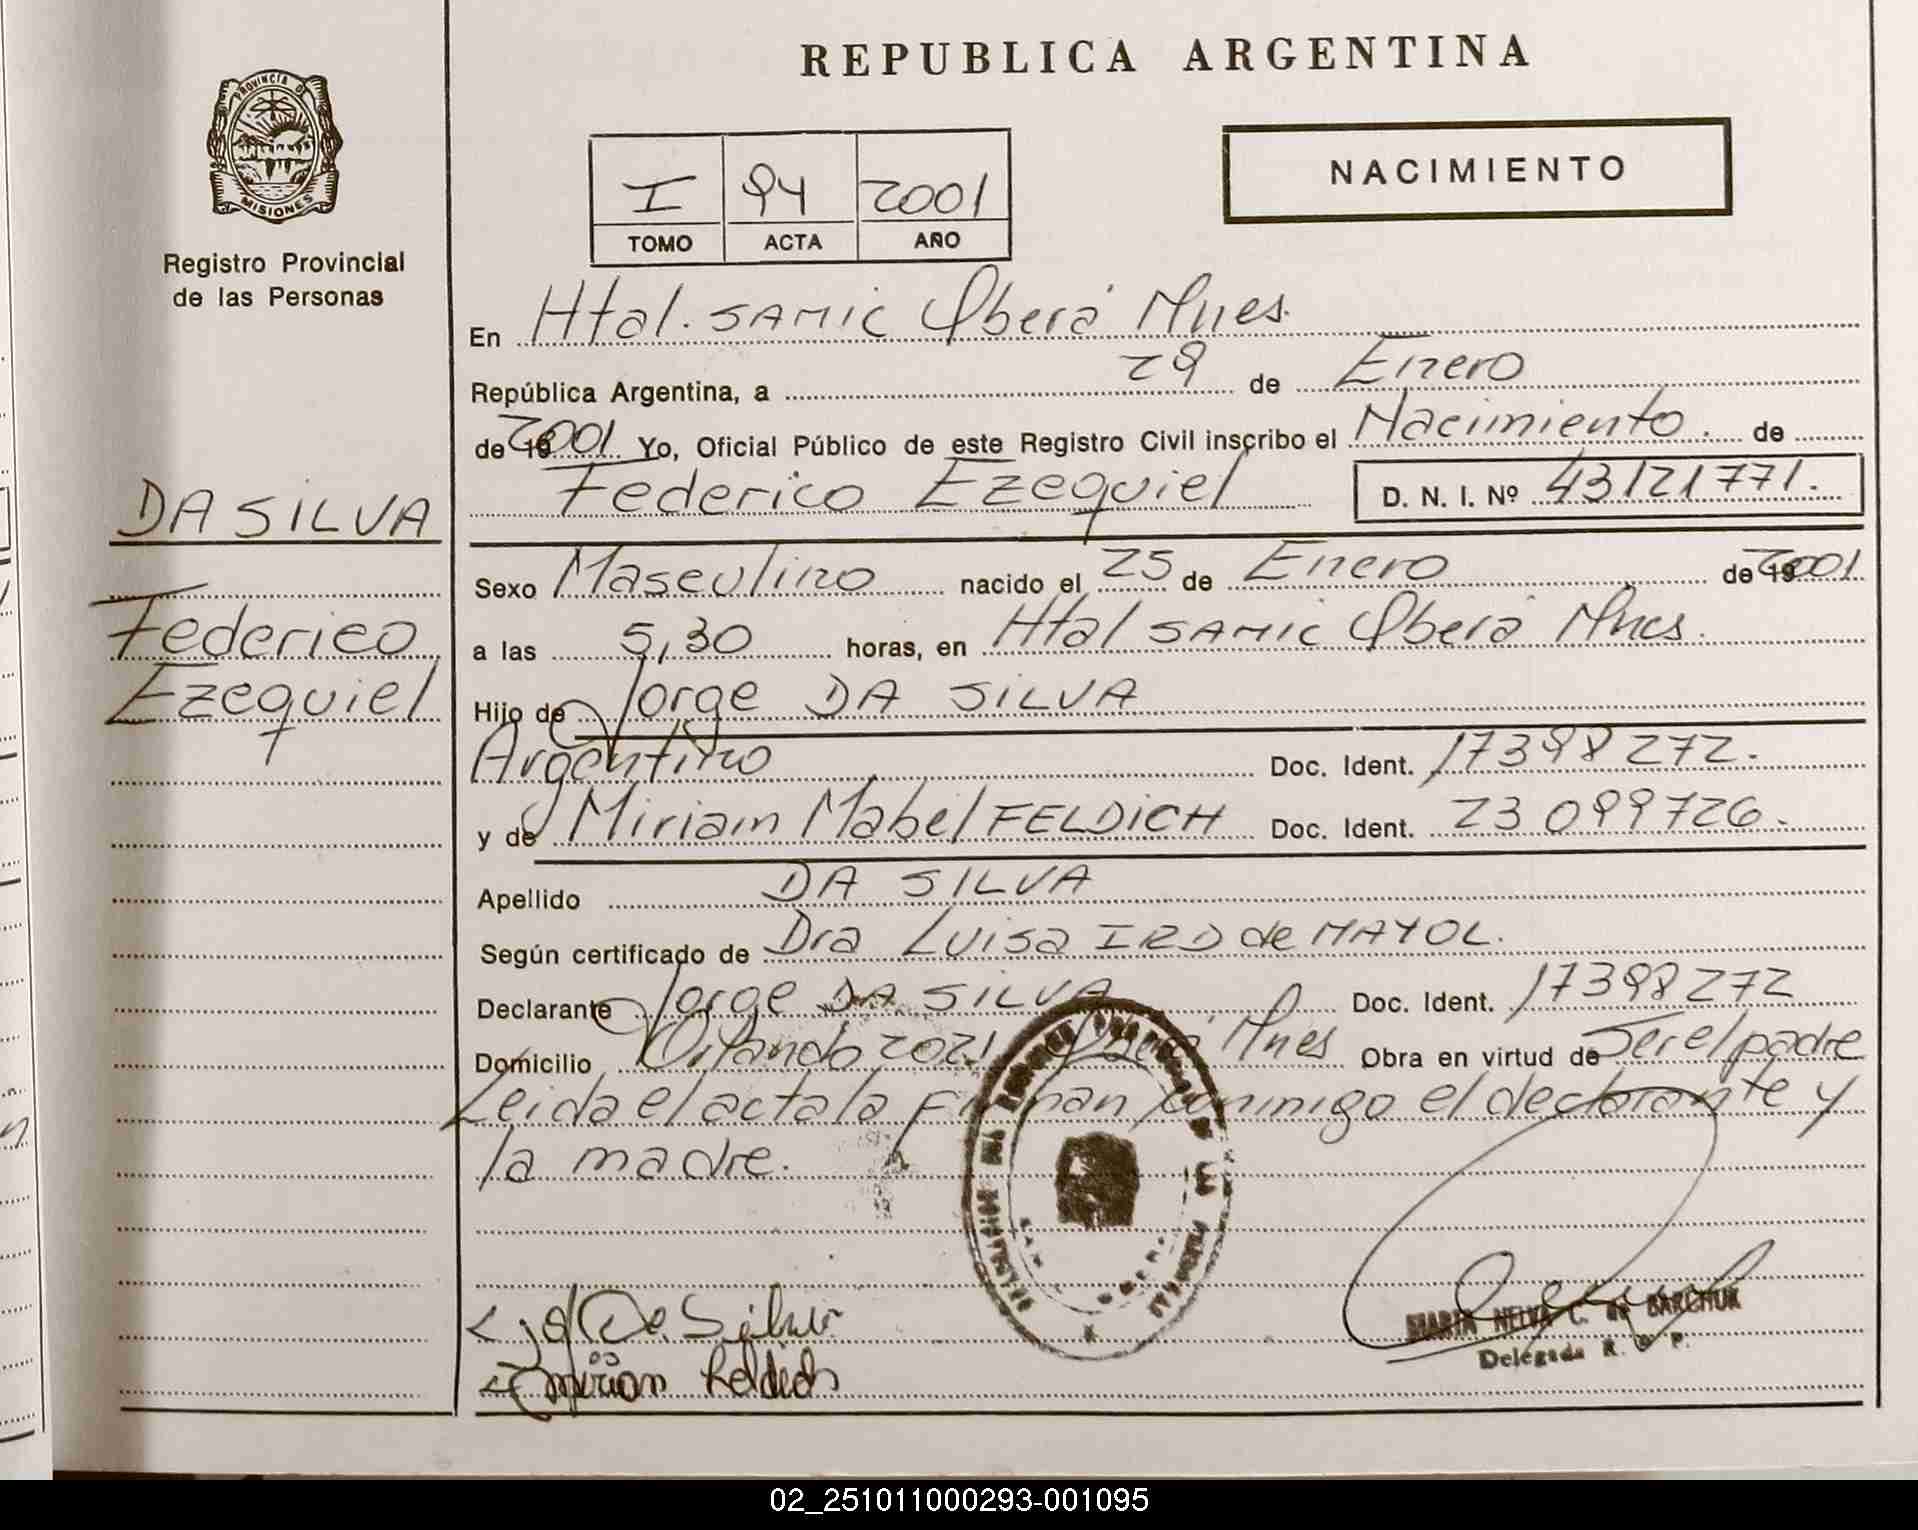 REPUBLICA ARGENTINA
PROVINCIA DE
MISIONES
Registro Provincial
de las Personas
I 94 2001
TOMO ACTA AÑO
NACIMIENTO
En Htal. SAMIC Oberá Mnes.
República Argentina, a 29 de Enero
de 19 2001 Yo, Oficial Público de este Registro Civil inscribo el Nacimiento. de
Federico Ezequiel D. N. I. Nº 43121771.
DA SILVA
Federico
Ezequiel
Sexo Masculino nacido el 25 de Enero de 19 2001
a las 5,30 horas, en Htal SAMIC Oberá Mnes.
Hijo de Jorge DA SILVA
Argentino Doc. Ident. 17398272.
y de Miriam Mabel FELDICH Doc. Ident. 23099726.
Apellido DA SILVA
Según certificado de Dra Luisa IRD de MAYOL.
Declarante Jorge DA SILVA Doc. Ident. 17398272
Domicilio 2021 Oberá Mnes Obra en virtud de Ser el padre
Leida el acta la Firman conmigo el declarante y
la madre.
Da Silva
Miriam Feldich
MARIA NELVA C. de BARCHUK
Delegada R. P.
02_251011000293-001095